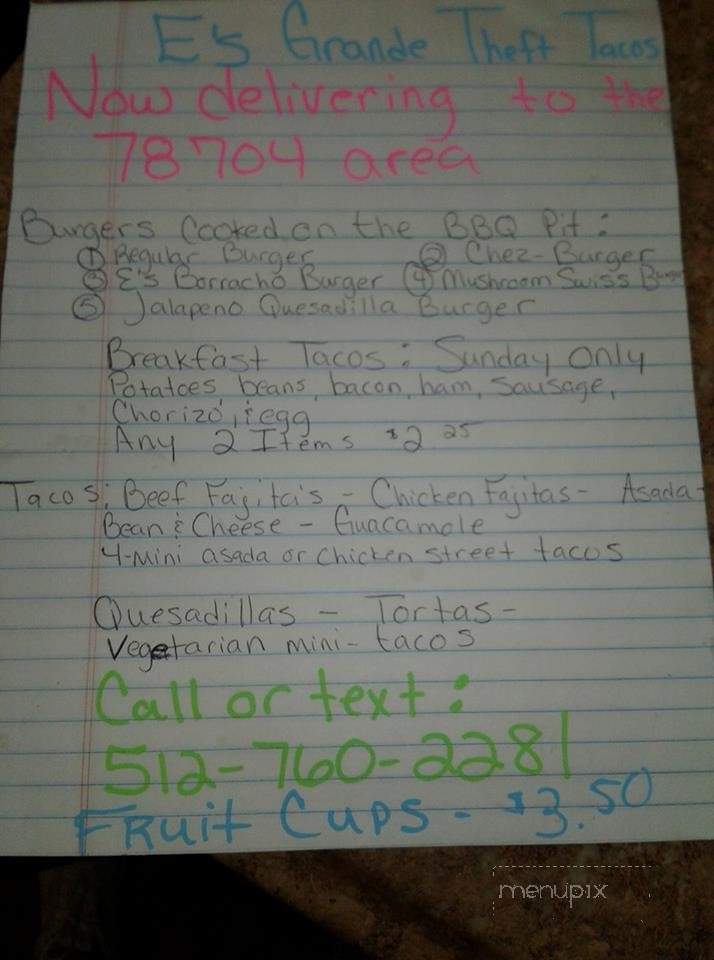 E's Grande Theft Tacos
Now delivering to the
78704 area
Burgers Cooked on the BBQ Pit:
① Regular Burger ② Chez-Burger
③ E's Borracho Burger ④ Mushroom Swiss Burger
⑤ Jalapeno Quesadilla Burger
Breakfast Tacos: Sunday Only
Potatoes, beans, bacon, ham, sausage,
Chorizo, & egg
Any 2 Items $2 25
Tacos: Beef Fajita's - Chicken Fajitas - Asada -
Bean & Cheese - Guacamole
4-mini asada or chicken street tacos
Quesadillas - Tortas -
Vegetarian mini-tacos
Call or text:
512-760-2281
Fruit Cups - $3.50
menupix